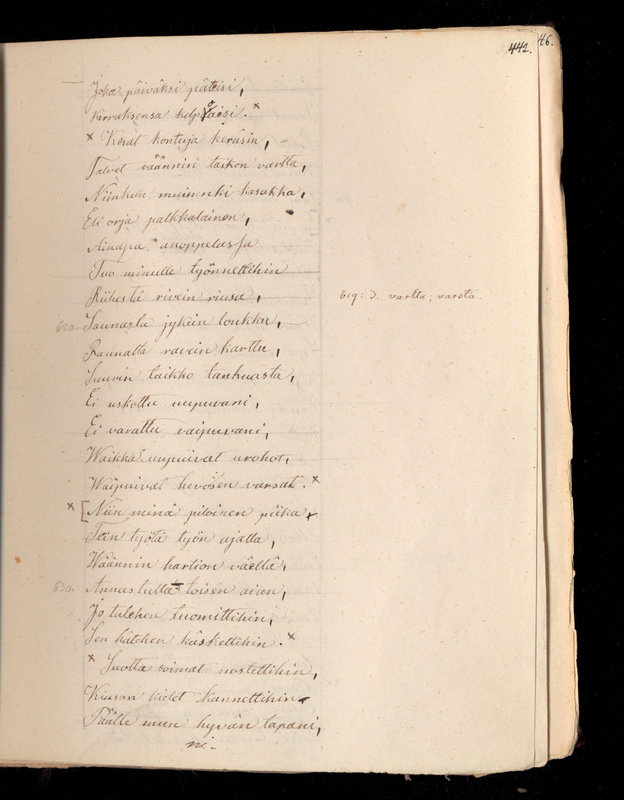 442.
46.
Joka päiväksi päteisi,
Kerraksensa kelpoaisi.
Kesät kontuja keräsin,
Talvet väännin taikon vartta,
Niinkun muinenki kasakka,
Eli orja palkkalainen,
Ainapa anoppelassa
Tuo minulle työnnettihin
Riihestä rivein riusa,
620. Saunasta jykein loukku,
Rannalta ravein karttu,
Suurin laikko tanhuasta,
Ei uskottu uupuvani,
Ei varattu vaipuvani,
Waikka uupuivat urohot,
Waipuivat hevosen varsat.
Niin minä piloinen piika,
Tein työtä työn ajalla,
Wäännin hartion väellä,
630. Annas tulla toisen ajan,
Jo tulehen tuomittihin,
Sen kätehen käskettihin.
Suotta soimat nostettihin,
Kiusan kielet kannettihin
Päälle mun hyvän tapani,
ni-
619: d. vartta; varsta.